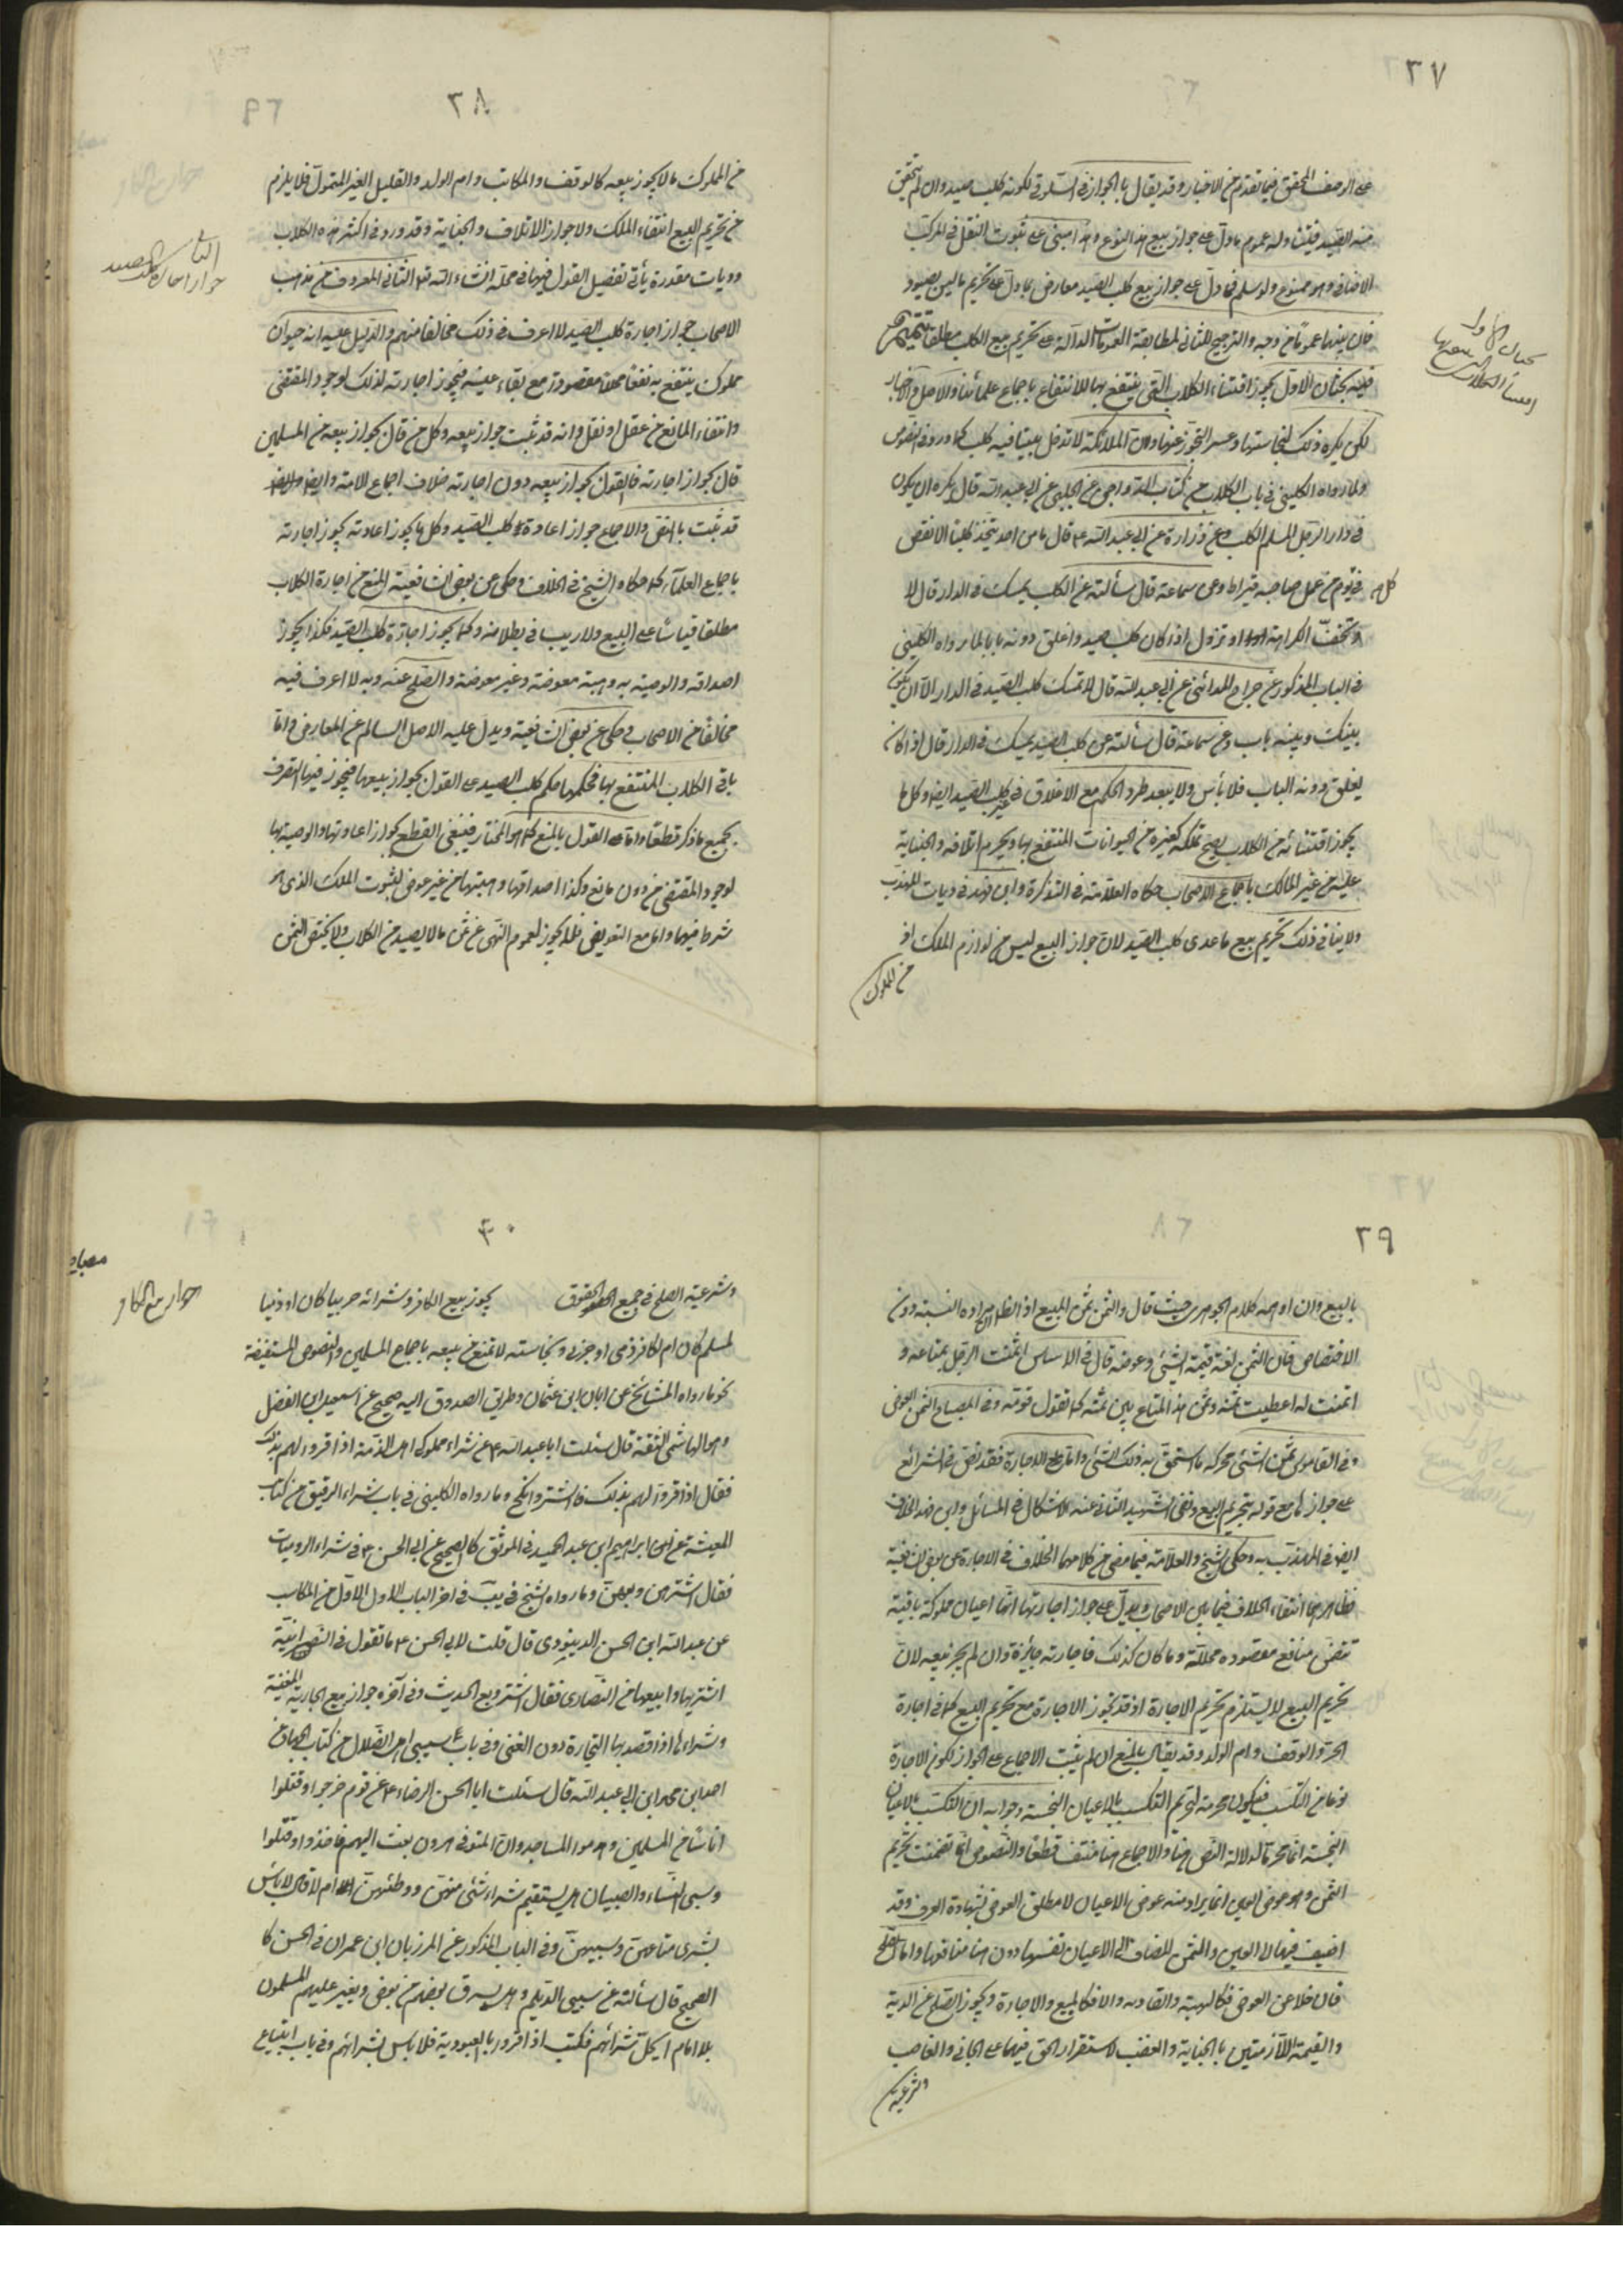 ٢٧
على الوصف المحقق فيما تقدم من الاخبار وقد يقال با الجواز فى السلوقى لكونه كلب صيد وان لم يتحقق
منه الصيد فيتناوله عموم ما دل على جواز بيع هذا النوع وهذا مبنى على ثبوت النقل فى المركب
الاضافى وهو ممنوع ولو سلم فما دل على جواز بيع كلب الصيد معارض بما دل على تحريم ما ليس يصيود
فان بينهما عموما من وجه والترجيح للثانى لمطابقة العمومات الدآلة على تحريم بيع الكلب مطلقا تتمة
فيه بحثان الاول يجوز اقتناء الكلاب التى ينتفع بها للانتفاع باجماع علمائنا والاصل والاخبار
لكن يكره ذلك لنجاستها وعسر التحرز عنها وان الملائكة لا تدخل بيتا فيه كلب كما ورد فى النصوص
ولما رواه الكلينى فى باب الكلاب من كتاب الدواجن عن الحلبى عن ابى عبد الله قال يكره ان يكون
فى دار الرجل المسلم الكلب وعن زرارة عن ابى عبد الله ع قال ما من احد يتخذ كلبا الا نقص
كل فى يوم من عمل صاحبه قيراط وعن سماعة قال سألته عن الكلب يمسك فى الدار قال لا
وتخف الكراهة او تزول اذا كان كلب صيد واغلق دونه بابا لما رواه الكلينى
فى الباب المذكور عن جراح المدائنى عن ابى عبد الله قال لا تمسك كلب الصيد فى الدار الا ان يكون
بينك وبينه باب وعن سماعة قال سألته عن كلب الصيد يمسك فى الدار قال اذا كان
يغلق دونه الباب فلا بأس ولا يبعد طرد الحكم مع الاغلاق فى غير كلب الصيد ايضا وكل ما
يجوز اقتنائه من الكلاب يصح تملكه كغيره من الحيوانات المنتفع بها ويحرم اتلافه والجناية
عليه من غير المالك باجماع الاصحاب حكاه العلامة فى التذكرة وابن فهد فى ديات المهذب
ولا ينافى ذلك تحريم بيع ما عدى كلب الصيد لان جواز البيع ليس من لوازم الملك اذ
من المملوك
٢٨
من المملوك ما لا يجوز بيعه كالوقف والمكاتب وام الولد والقليل الغير المتمول فلا يلزم
من تحريم البيع انتفاء الملك ولا جواز الاتلاف والجناية وقد ورد فى اكثر هذه الكلاب
ديات مقدرة يأتى تفصيل القول فيها فى محله انشاء الله تع الثانى المعروف من مذهب
الاصحاب جواز اجارة كلب الصيد لا اعرف فى ذلك مخالفا منهم والدليل عليه انه حيوان
مملوك ينتفع به نفعا محللا مقصودا مع بقاء عينه فيجوز اجارته لذلك لوجود المقتضى
وانتفاء المانع من عقل او نقل وانه قد ثبت جواز بيعه وكل من قال بجواز بيعه من المسلمين
قال بجواز اجارته فالقول بجواز بيعه دون اجارته خلاف اجماع الامة وايضا
قد ثبت بالنص والاجماع جواز اعادة كلب الصيد وكل ما يجوز اعادته يجوز اجارته
باجماع العلمآء كما حكاه الشيخ فى الخلاف وحكى عن بعض الشافعية المنع من اجارة الكلاب
مطلقا قياسا على البيع ولا ريب فى بطلانه وكما يجوز اجارة كلب الصيد فكذا يجوز
اصداقه والوصية به وهبته معوضة وغير معوضة والصلح عنه وبه لا اعرف فيه
مخالفا من الاصحاب وحكى عن بعض الشافعية ويدل عليه الاصل السالم عن المعارض واما
باقى الكلاب المنتفع بها فحكمها حكم كلب الصيد على القول بجواز بيعها فيجوز فيها التصرف
بجميع ما ذكر قطعا واما على القول بالمنع كما هو المختار فينبغى القطع بجواز اعارتها والوصية بها
لوجود المقتضى من دون مانع وكذا اصداقها وهبتها من غير عوض لثبوت الملك الذى هو
شرط فيهما واما مع التعويض فلا يجوز لعموم النهى عن ثمن ما لا يصيد من الكلاب ولا يختص الثمن
٢٩
بالبيع وان اوهمه كلام الجوهرى حيث قال والثمن ثمن المبيع اذ الظاهر ان مراده النسبة دون
الاختصاص فان الثمن لغة قيمة الشيئ وعوضه قال فى الاساس اثمنت الرجل بمتاعه و
اثمنت له اعطيت ثمنه وثمن هذا المتاع بين ثمنه كما تقول قومته وفى المصباح الثمن العوض
وفى القاموس ثمن الشئى محركه ما استحق به ذلك الشئى واما الاجارة فقد نص فى الشرائع
على جوازها مع قوله بتحريم البيع ونفى الشهيد الثانى عنه الاشكال فى المسائل وابن فهد الخلاف
ايضا فى المهذب به وحكى الشيخ والعلامة فيما مضى من كلامهما الخلاف فى الاجارة عن بعض الشافعية
فظاهرهما انتفاء الخلاف فيما بين الاصحاب ويدل على جواز اجارتها انها اعيان مملوكة باقية
تتضمن منافع مقصوده محللة وما كان كذلك فاجارته جائزة وان لم يجز بيعه لان
تحريم البيع لا يستلزم تحريم الاجارة اذ قد يجوز الاجارة مع تحريم البيع كما فى اجارة
الحر والوقف وام الولد وقد يقال بالمنع ان لم يثبت الاجماع على الجواز لكون الاجارة
نوعا من التكسب فيكون محرمة لتحريم التكسب بالاعيان النجسة وجوابه ان التكسب بالاعيان
النجسة انما يحرم لدلالة النص والاجماع هنا منتف قطعا والنصوص انما تضمنت تحريم
الثمن وهو عوض العين انما يراد منه عوض الاعيان لا مطلق العوض بشهادة العرف وقد
اضيف فيها الى العين والثمن المضاف الى الاعيان نفسها دون منافعها واما الصلح
فان خلا عن العوض فكالهبة والعارية والا فكالبيع والاجارة ويجوز الصلح عن الدية
والقيمة اللآزمتين با الجناية والغصب لاستقرار الحق فيهما على الجانى والغاصب
وشرعية
٣٠
وشرعية الصلح فى جميع الحقوق يجوز بيع الكافر وشرائه حربيا كان او ذميا
لمسلم كان ام لكافر ذمى او حربى ونجاسته لا تمنع من بيعه باجماع المسلمين والنصوص المستفيضة
نحو ما رواه المشائخ عن ابان ابن عثمان وطريق الصدوق اليه صحيح عن اسمعيل ابن الفضل
وهو الهاشمى الثقة قال سئلت ابا عبد الله ع عن شراء مملوك اهل الذمة اذا اقروا لهم بذلك
فقال اذا اقروا لهم بذلك فاشتر وانكح وما رواه الكلينى فى باب شراء الرقيق من كتاب
المعيشة عن ابراهيم ابن عبد الحميد فى الموثق كالصحيح عن ابى الحسن ع فى شراء الروميات
فقال اشترهن وبعهن وما رواه الشيخ فى يب فى اخر الباب الاول من المكاسب
عن عبد الله ابن الحسن الدينورى قال قلت لابى الحسن ع ما تقول فى النصرانية
اشتريها وابيعها من النصارى فقال اشتر وبع الحديث وفى آخره جواز بيع الجارية المغنية
وشراءها اذا قصد بها التجارة دون الغنى وفى باب سبى اهل الضلال من كتاب الجهاد عن
احمد ابن محمد ابن ابى عبد الله قال سئلت ابا الحسن الرضاء ع عن قوم خرجوا وقتلوا
اناسا من المسلمين وهدموا المساجد وان المتوفى هرون بعث اليهم فاخذوا وقتلوا
وسبى النساء والصبيان هل يستقيم شراء شئى منهن ووطئهن ام لا قال لا بأس
بشرى متاعهن وسبيهن وفى الباب المذكور عن المرزبان ابن عمران فى الحسن كا
الصحيح قال سألته عن سبى الديلم وهم يسرق بعضهم من بعض ويغير عليهم المسلمون
بلا امام ايحل شرائهم فكتب اذا اقروا بالعبودية فلا باس بشرائهم وفى باب ابتياع